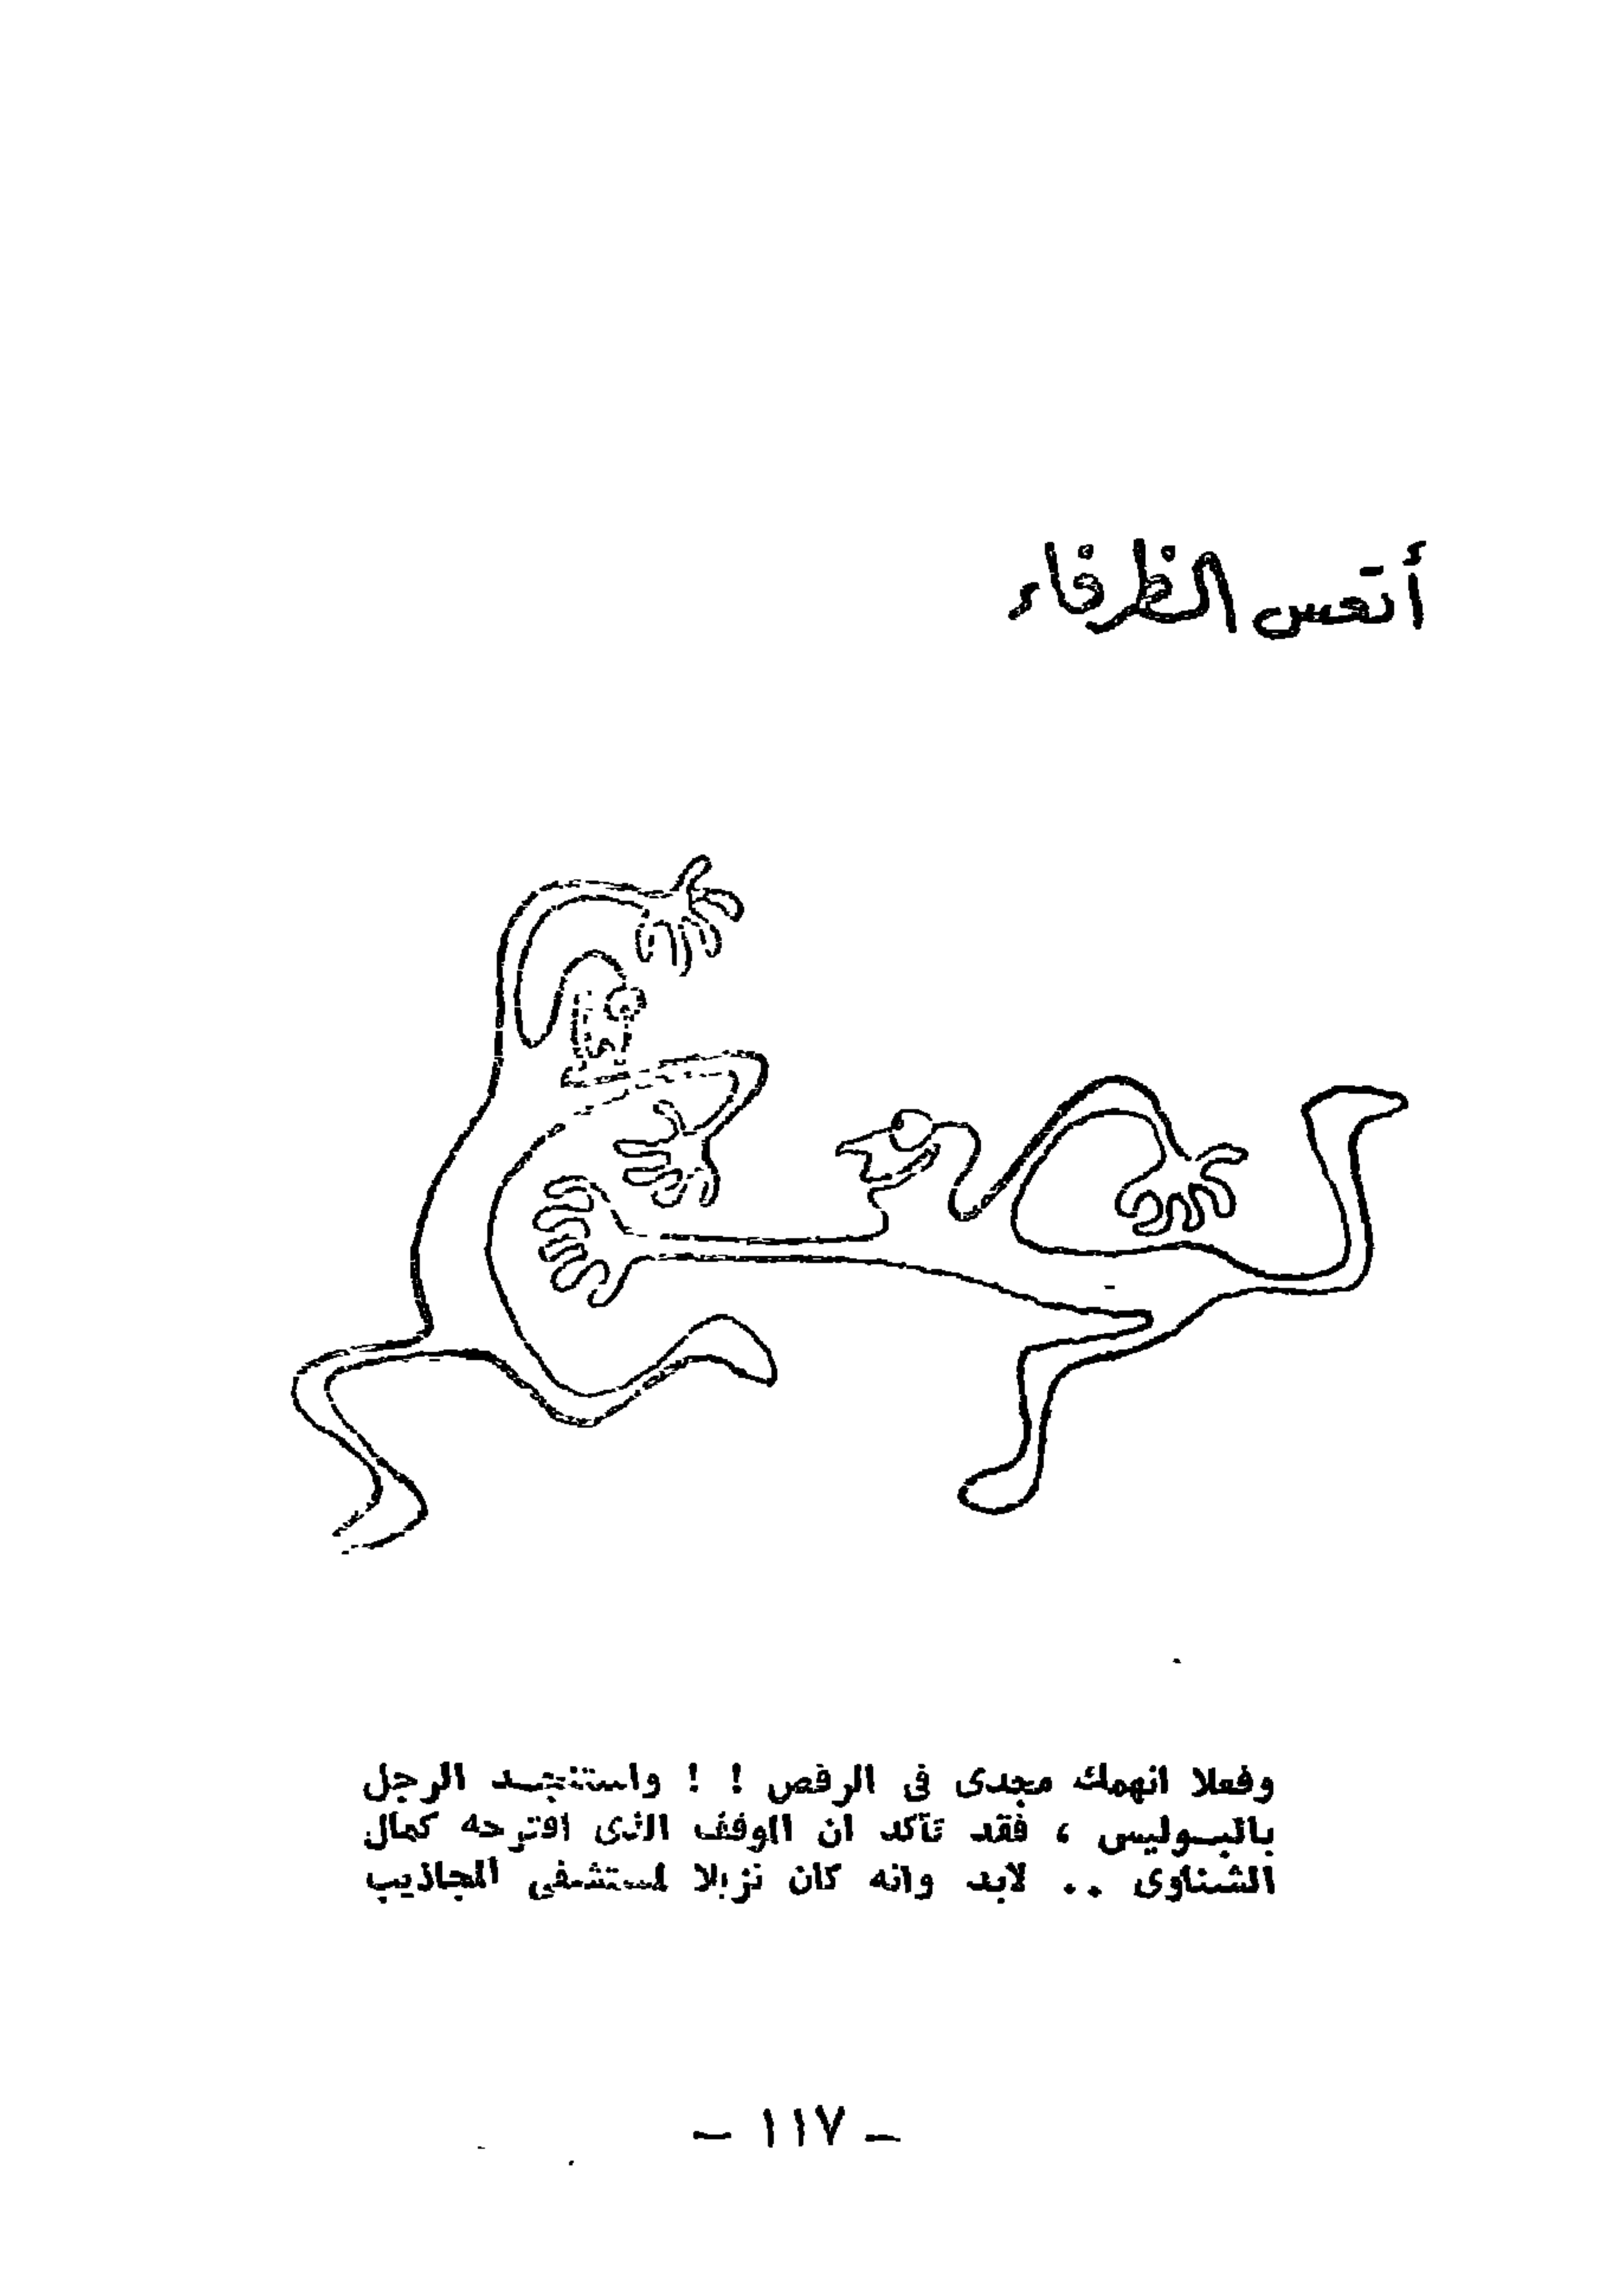 أتعس الظرفاء
وفعلا انهمك مجدى فى الرقص ! ! واستنجـد الرجل
بالبـوليس ، فقد تأكد ان الوفف الذى اقترحه كمال
الشناوى .. لابد وانه كان نزيلا لمستشفى المجاذيب
– ١١٧ –